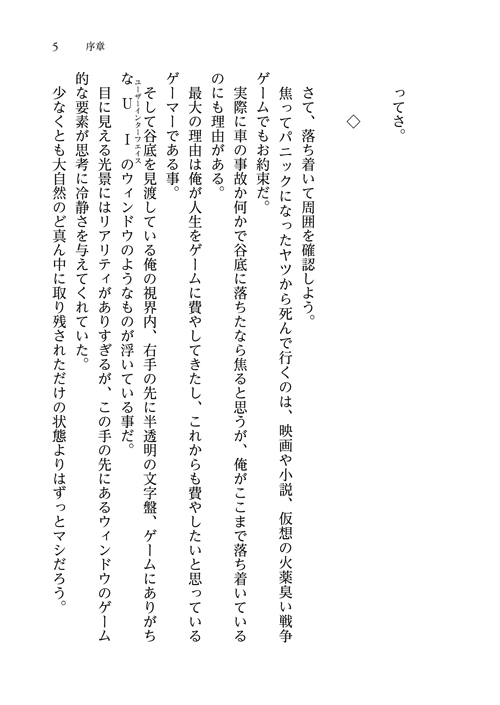 5　序章
ってさ。
◇
さて、落ち着いて周囲を確認しよう。
焦ってパニックになったヤツから死んで行くのは、映画や小説、仮想の火薬臭い戦争
ゲームでもお約束だ。
実際に車の事故か何かで谷底に落ちたなら焦ると思うが、俺がここまで落ち着いている
のにも理由がある。
最大の理由は俺が人生をゲームに費やしてきたし、これからも費やしたいと思っている
ゲーマーである事。
そして谷底を見渡している俺の視界内、右手の先に半透明の文字盤、ゲームにありがち
ユーザーインターフェイス
なUIのウィンドウのようなものが浮いている事だ。
目に見える光景にはリアリティがありすぎるが、この手の先にあるウィンドウのゲーム
的な要素が思考に冷静さを与えてくれていた。
少なくとも大自然のど真ん中に取り残されただけの状態よりはずっとマシだろう。